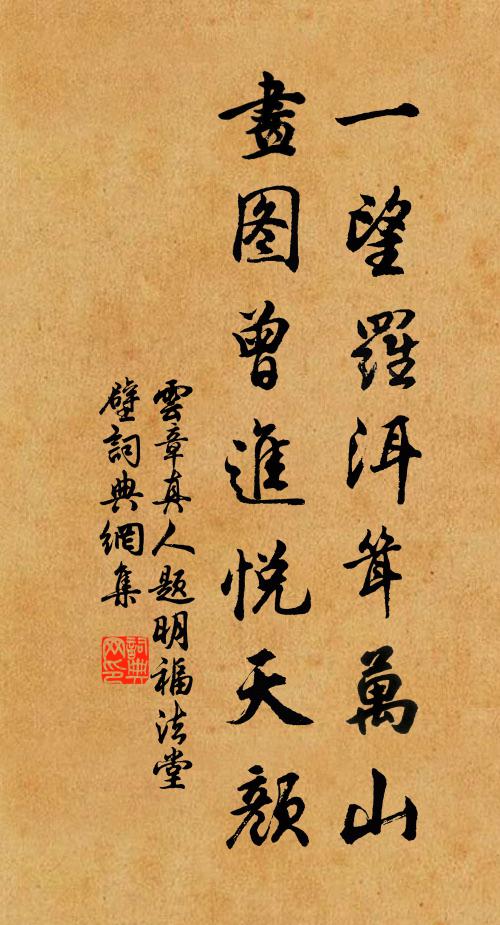 一望羅洱耸萬山
畫图曾進悦天颜
雲章真人题明福法堂
壁詞典網集
詞典
网印